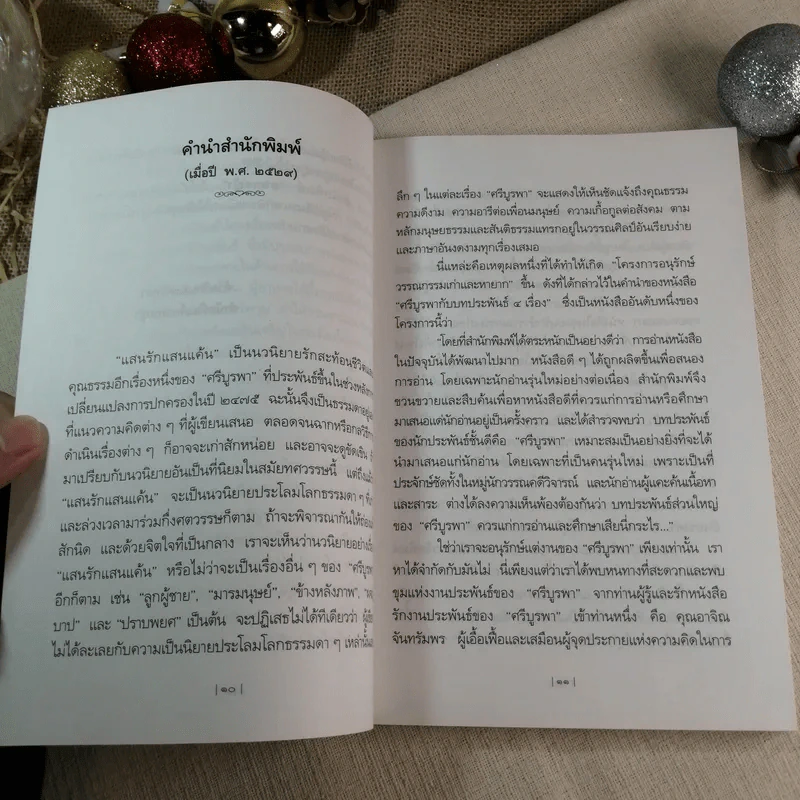 คำนำสำนักพิมพ์
(เมื่อปี พ.ศ. ๒๕๒๙)
"แสนรักแสนแค้น" เป็นนวนิยายรักสะท้อนชีวิตและ
คุณธรรมอีกเรื่องหนึ่งของ "ศรีบูรพา" ที่ประพันธ์ขึ้นในช่วงหลังการ
เปลี่ยนแปลงการปกครองในปี ๒๔๗๕ ฉะนั้นจึงเป็นธรรมดาอยู่
ที่แนวความคิดต่าง ๆ ที่ผู้เขียนเสนอ ตลอดจนฉากหรือกลวิธี
ดำเนินเรื่องต่าง ๆ ก็อาจจะเก่าสักหน่อย และอาจจะดูขัดเขิน
มาเปรียบกับนวนิยายอันเป็นที่นิยมในสมัยทศวรรษนี้ แต่ถึงแม้
"แสนรักแสนแค้น" จะเป็นนวนิยายประโลมโลกธรรมดา ๆ
และล่วงเวลามาร่วมกึ่งศตวรรษก็ตาม ถ้าจะพิจารณากันให้ถ่องแท้
สักนิด และด้วยจิตใจที่เป็นกลาง เราจะเห็นว่านวนิยายอย่าง
"แสนรักแสนแค้น" หรือไม่ว่าจะเป็นเรื่องอื่น ๆ ของ "ศรีบูรพา"
อีกก็ตาม เช่น "ลูกผู้ชาย", "มารมนุษย์", "ข้างหลังภาพ",
บาป" และ "ปราบพยศ" เป็นต้น จะปฏิเสธไม่ได้ทีเดียวว่า
ไม่ได้ละเลยกับความเป็นนวนิยายประโลมโลกธรรมดา ๆ เหล่านั้น
| ๑๐ |
ลึก ๆ ในแต่ละเรื่อง "ศรีบูรพา" จะแสดงให้เห็นชัดแจ้งถึงคุณธรรม
ความดีงาม ความอารีต่อเพื่อนมนุษย์ ความเกื้อกูลต่อสังคม ตาม
หลักมนุษยธรรมและสันติธรรมแทรกอยู่ในวรรณศิลป์อันเรียบง่าย
และภาษาอันงดงามทุกเรื่องเสมอ
นี่แหล่ะคือเหตุผลหนึ่งที่ได้ทำให้เกิด "โครงการอนุรักษ์
วรรณกรรมเก่าและหายาก" ขึ้น ดังที่ได้กล่าวไว้ในคำนำของหนังสือ
"ศรีบูรพากับบทประพันธ์ ๔ เรื่อง" ซึ่งเป็นหนังสืออันดับหนึ่งของ
โครงการนี้ว่า
"โดยที่สำนักพิมพ์ได้ตระหนักเป็นอย่างดีว่า การอ่านหนังสือ
ในปัจจุบันได้พัฒนาไปมาก หนังสือดี ๆ ได้ถูกผลิตขึ้นเพื่อสนอง
การอ่าน โดยเฉพาะนักอ่านรุ่นใหม่อย่างต่อเนื่อง สำนักพิมพ์จึง
ชวนขวายและสืบค้นเพื่อหาหนังสือดีที่ควรแก่การอ่านหรือศึกษา
มาเสนอแด่นักอ่านอยู่เป็นครั้งคราว และได้สำรวจพบว่า บทประพันธ์
ของนักประพันธ์ชั้นดีคือ "ศรีบูรพา" เหมาะสมเป็นอย่างยิ่งที่จะได้
นำมาเสนอแก่นักอ่าน โดยเฉพาะที่เป็นคนรุ่นใหม่ เพราะเป็นที่
ประจักษ์ชัดทั้งในหมู่นักวรรณคดีวิจารณ์ และนักอ่านผู้แคะค้นเนื้อหา
และสาระ ต่างได้ลงความเห็นพ้องต้องกันว่า บทประพันธ์ส่วนใหญ่
ของ "ศรีบูรพา" ควรแก่การอ่านและศึกษาเสียนี่กระไร..."
ใช่ว่าเราจะอนุรักษ์แต่งานของ "ศรีบูรพา" เพียงเท่านั้น เรา
หาได้จำกัดกับมันไม่ นี่เพียงแต่ว่าเราได้พบหนทางที่สะดวกและพบ
ขุมแห่งงานประพันธ์ของ "ศรีบูรพา" จากท่านผู้รู้และรักหนังสือ
รักงานประพันธ์ของ "ศรีบูรพา" เข้าท่านหนึ่ง คือ คุณอาจิณ
จันทรัมพร ผู้เอื้อเฟื้อและเสมือนผู้จุดประกายแห่งความคิดในการ
| ๑๑ |